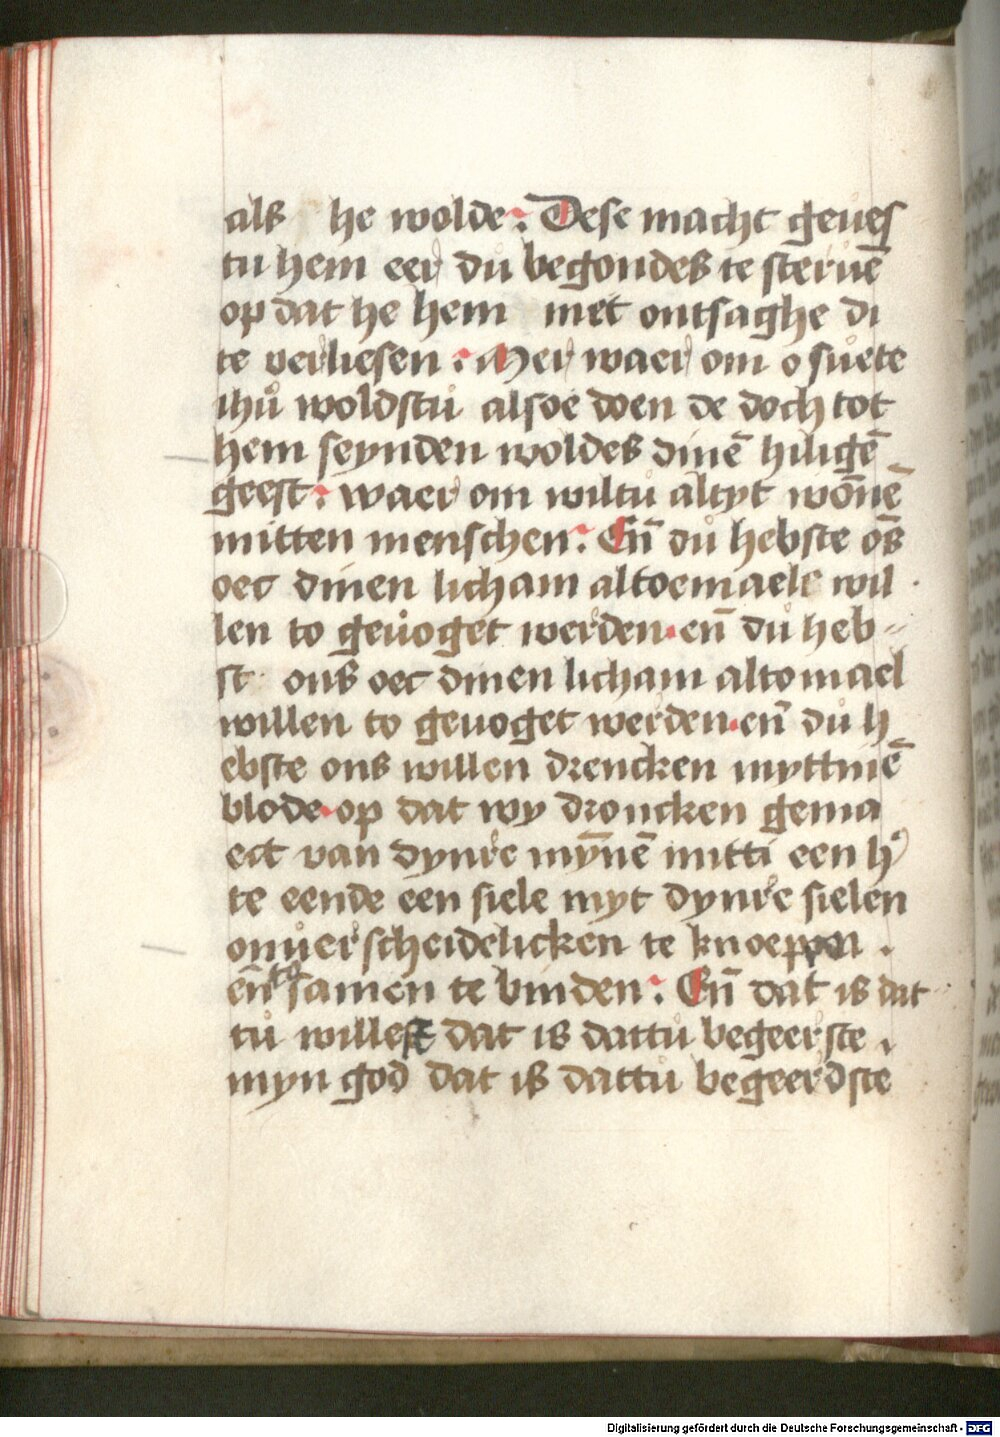 als he wolde. Dese macht geues
tu hem eer du begondes te steruē
op dat he hem niet ontsaghe di
te verliesen. Mer waer om o suete
ihū woldstu alsoe doen de doch tot
hem seynden woldes dinē hiligē
geest. waer om wiltu altyt wōnē
mitten menschen. En̄ du hebste ōs
oec dinen licham altoemaele wil
len to geuoget werden. en̄ du heb-
st ons oec dinen licham altomael
willen to geuoget werden. en̄ du h
ebste ons willen drencken myttinē
blode. op dat wy droncken gema
ect van dynre mȳnē mitti een h
te eende een siele myt dynre sielen
onuerscheidelicken te knoepen.
en̄ to samen te binden. En̄ dat is dat
tu willest dat is dattu begeerste.
myn god dat is dattu begeerdste
Digitalisierung gefördert durch die Deutsche Forschungsgemeinschaft - DFG